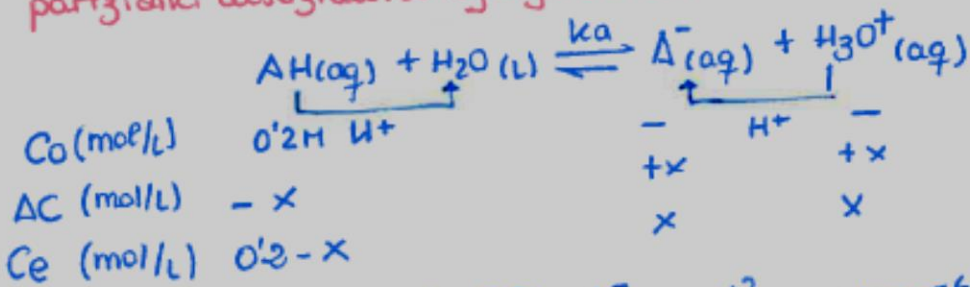 AH(aq) + H₂O (l) ⇌ A⁻(aq) + H₃O⁺(aq)
Ka
H⁺ H⁺
Co (mol/L) 0'2M – –
ΔC (mol/L) – x +x +x
Ce (mol/L) 0'2 – x x x